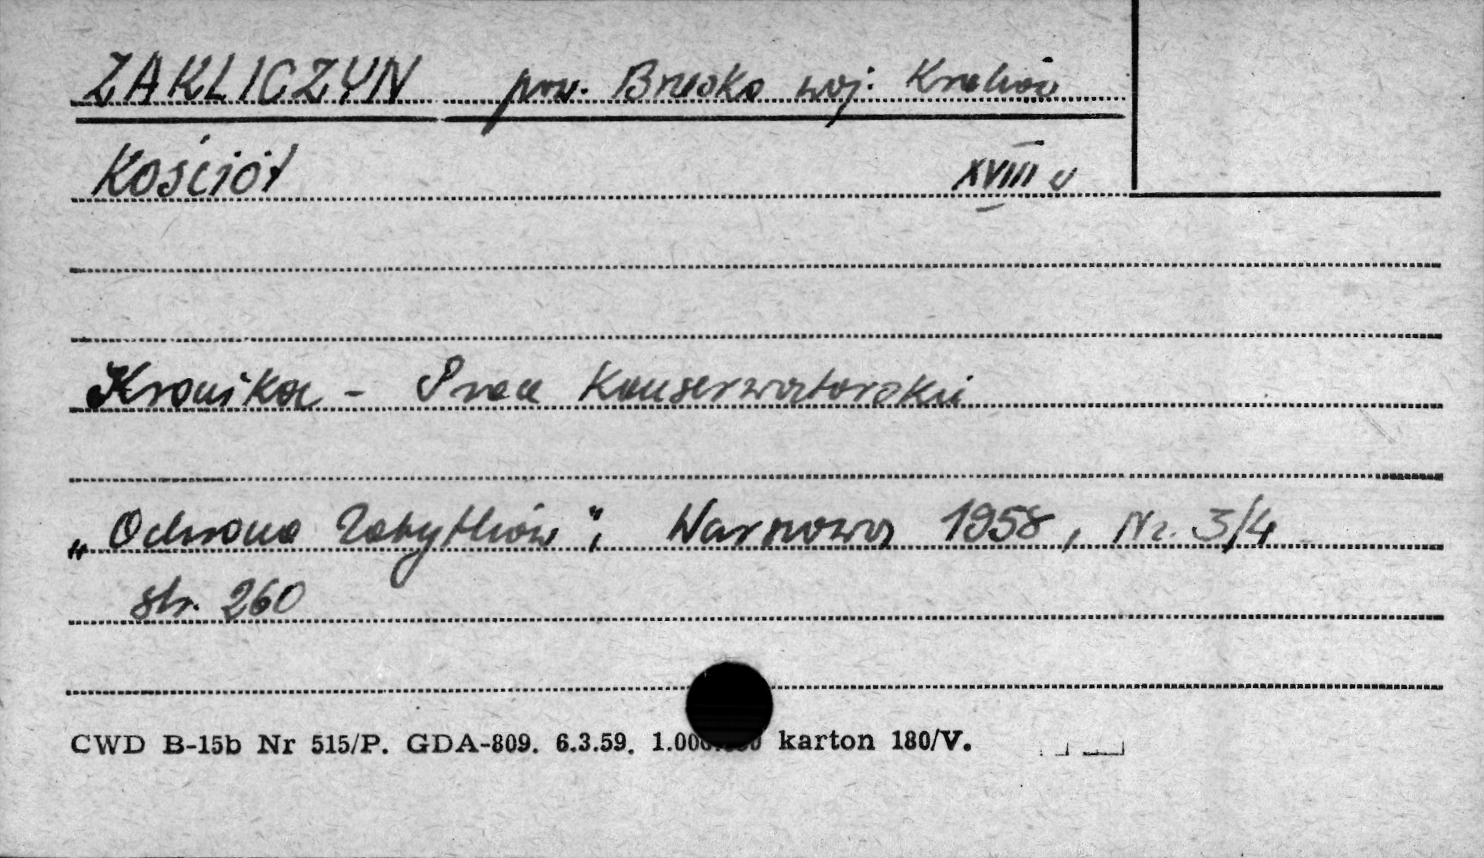 ZAKLICZYN pow. Brzesko woj. Kraków
Kościół XVIII w
Kronika - Prace Konserwatorskie
„Ochrona Zabytków”; Warszawa 1958, Nr. 3/4
str. 260
CWD B-15b Nr 515/P. GDA-809. 6.3.59. karton 180/V.